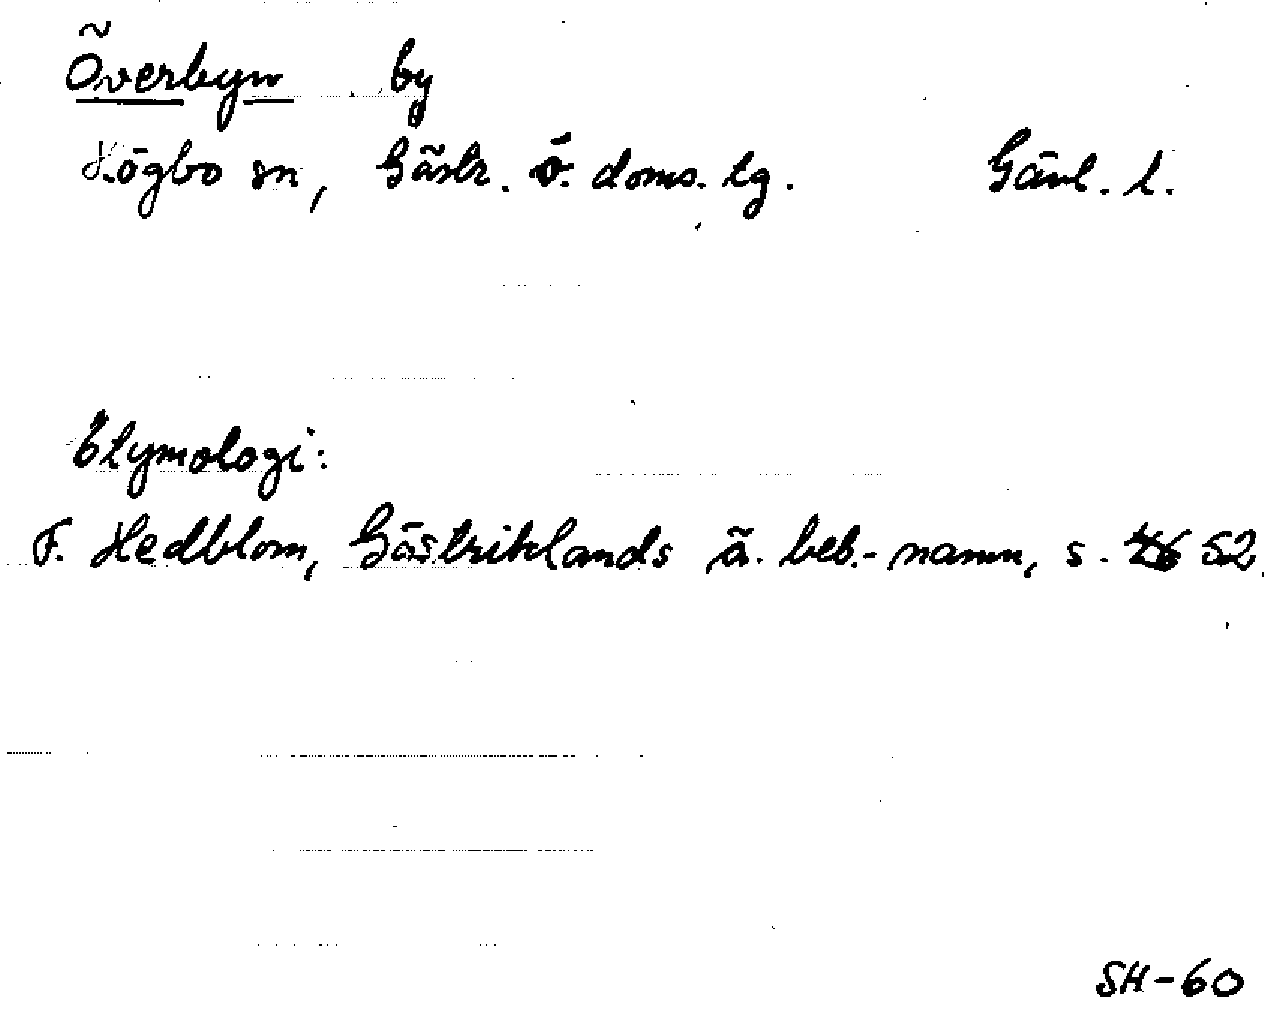 Överbyn by
Högbo sn, Gästr. ö. doms. lg. Gävl. l.
Etymologi:
F. Hedblom, Gästriklands ä. beb.-namn, s. 52
SH-60